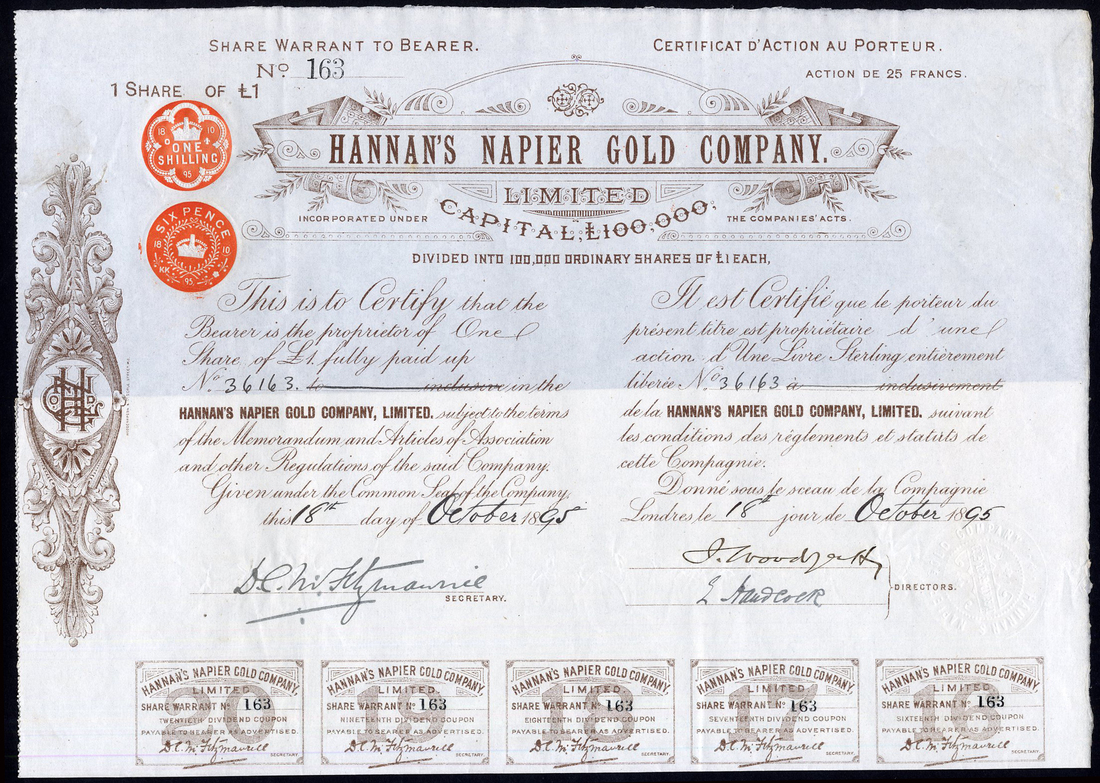 SHARE WARRANT TO BEARER.
CERTIFICAT D'ACTION AU PORTEUR.
No 163
ACTION DE 25 FRANCS.
1 SHARE OF £1
18 10
ONE
SHILLING
95
HANNAN'S NAPIER GOLD COMPANY.
LIMITED
INCORPORATED UNDER
THE COMPANIES' ACTS.
CAPITAL, £100,000,
SIXPENCE
18 10
KK 95
DIVIDED INTO 100,000 ORDINARY SHARES OF £1 EACH,
This is to Certify that the
Bearer is the proprietor of One
Share of £1 fully paid up
No 36163. to inclusive in the
HANNAN'S NAPIER GOLD COMPANY, LIMITED. subject to the terms
of the Memorandum and Articles of Association
and other Regulations of the said Company.
Given under the Common Seal of the Company,
this 18th day of October 1895
Il est Certifié que le porteur du
présent titre est propriétaire d'une
action d'Une Livre Sterling entièrement
libérée No 36163 à inclusivement
de la HANNAN'S NAPIER GOLD COMPANY, LIMITED. suivant
les conditions des réglements et statuts de
cette Compagnie.
Donné sous le sceau de la Compagnie
Londres le 18th jour de October 1895
D.C. McFitzmaurice
SECRETARY.
DIRECTORS.
HANNAN'S NAPIER GOLD COMPANY,
LIMITED.
SHARE WARRANT No 163
TWENTIETH DIVIDEND COUPON
PAYABLE TO BEARER AS ADVERTISED.
SECRETARY.
HANNAN'S NAPIER GOLD COMPANY,
LIMITED.
SHARE WARRANT No 163
NINETEENTH DIVIDEND COUPON
PAYABLE TO BEARER AS ADVERTISED.
SECRETARY.
HANNAN'S NAPIER GOLD COMPANY,
LIMITED.
SHARE WARRANT No 163
EIGHTEENTH DIVIDEND COUPON
PAYABLE TO BEARER AS ADVERTISED.
SECRETARY.
HANNAN'S NAPIER GOLD COMPANY,
LIMITED.
SHARE WARRANT No 163
SEVENTEENTH DIVIDEND COUPON
PAYABLE TO BEARER AS ADVERTISED.
SECRETARY.
HANNAN'S NAPIER GOLD COMPANY,
LIMITED.
SHARE WARRANT No 163
SIXTEENTH DIVIDEND COUPON
PAYABLE TO BEARER AS ADVERTISED.
SECRETARY.